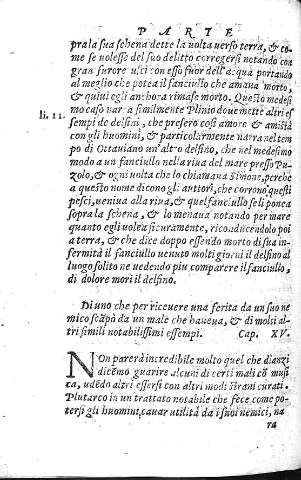 PARTE
pra la sua schena dette la uolta uerso terra, & co-
me se uolesse del suo delitto corregersi notando con
gran furore uscì con esso fuor dell'acqua portando
al meglio che potea il fanciullo che amaua morto,
& quiui egli anchora rimase morto. Questo medesi
li. 11. mo caso narra similmente Plinio doue mette altri es
sempi de delfini, che presero così amore & amistà
con gli huomini, & particolarmente narra nel tem
po di Ottauiano un'altro delfino, che nel medesimo
modo a un fanciullo nella riua del mare presso Pu-
zolo, & ogni uolta che lo chiamaua Simone, perche
a questo nome dicono gli auttori, che corrono questi
pesci, ueniua alla riua, & quel fanciullo se li ponea
sopra la schena, & lo menaua notando per mare
quanto egli uolea sicuramente, riconducendolo poi
a terra, & che dice doppo essendo morto di sua in-
fermità il fanciullo uenuto molti giorni il delfino al
luogo solito ne uedendo piu comparere il fanciullo,
di dolore morì il delfino.
Di uno che per riceuere una ferita da un suo ne
mico scāpò da un male che haueua, & di molti al-
tri simili notabilissimi essempi. Cap. XV.
NON parerà incredibile molto quel che dianzi
dicēmo guarire alcuni di certi mali cō musi
ca, udēdo altri essersi con altri modi strani curati.
Plutarco in un trattato notabile che fece come po-
tersi gli huomini cauar utilità da i suoi nemici, na
ra